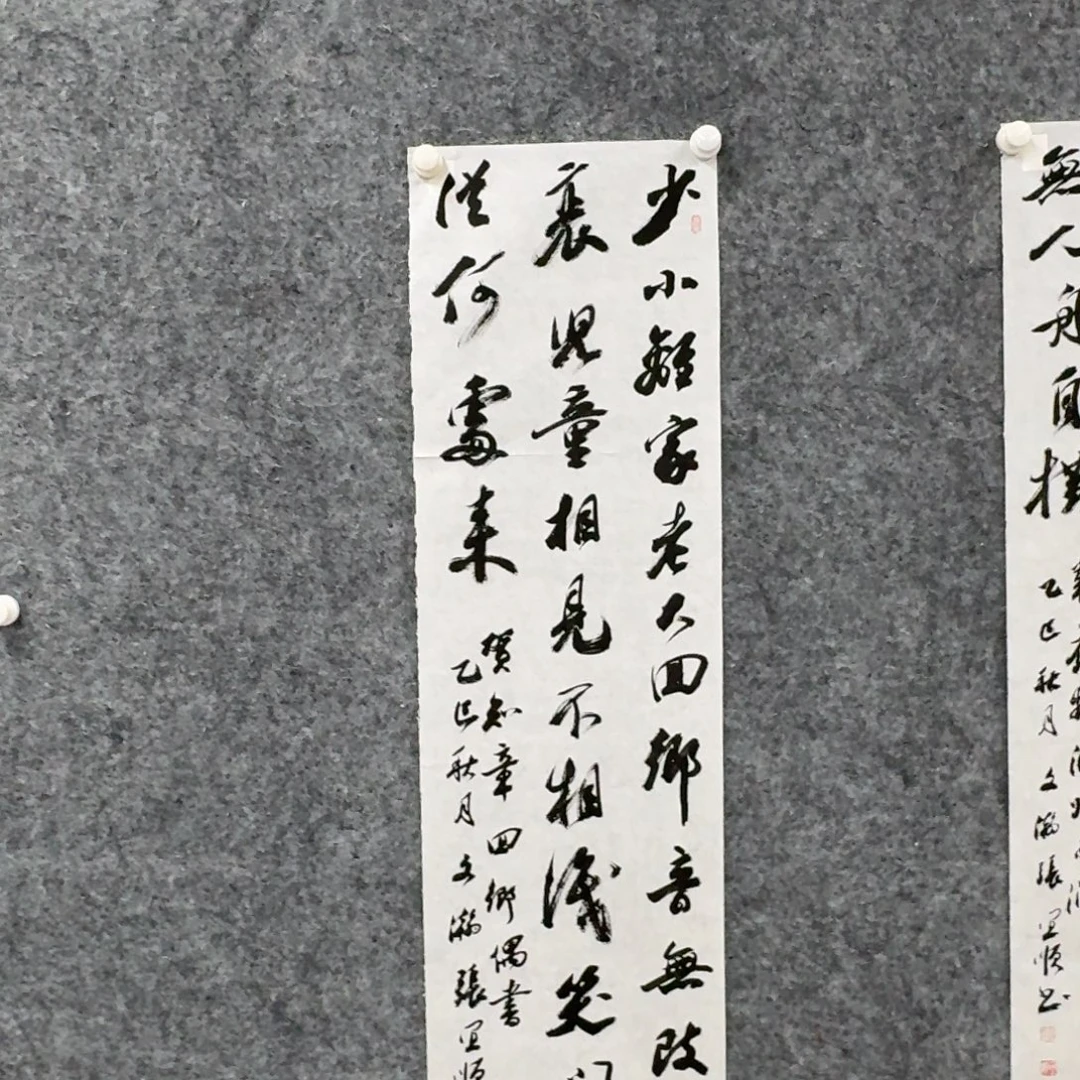 少小離家老大回鄉音無改
衰兒童相見不相識笑
從何處来
賀知章回鄉偶書
乙巳秋月文瀚張宜順
無人舟自横
乙巳秋月文瀚張宜順书